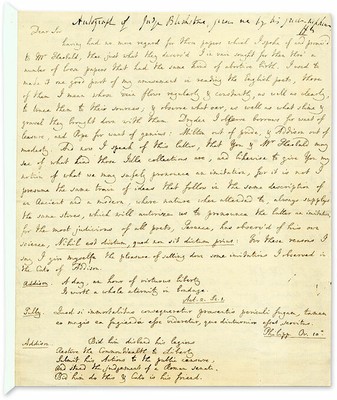 Autograph of Judge Blackstone, given me by his
Dear Sir
having had no more regard for those papers which I spoke of and promis'd
to Mr Hasbild, than just what they deserv'd I'm very sorry for them then a
number of loose papers that had the same kind of abortive birth. I used to
make it no small part of my amusement in reading the English poets, those
of them I mean whose vein flows regularly & constantly, as well as clearly,
to trace them to their sources; & observe what ore, as well as what slime &
gravel they brought down with them. Dryden I observe borrows for want of
leisure, and Pope for want of genius: Milton out of pride, & Addison out of
modesty. And now I speak of this latter, that You & Mr Hasbild may
see of what kind these Idle collections are, and likewise to give You my
notion of what we may safely pronounce an imitation, for it is not I
presume the same train of ideas that follow in the same description of
an Ancient and a modern, where nature when attended to, always supplys
the same stores, which will autorise us to pronounce the latter an imitation,
for the most judicious of all poets, Terence, has observ'd of his own
science, Nihil est dictum, quod non sit dictum prius: For these reasons I
say I give myself the pleasure of setting down some imitations I observed in
the Cato of Addison.
Addison. A day, an hour of virtuous liberty
Is worth a whole eternity in bondage.
Act. 2. Sc. 1.
Tully. Quod si immortalitas consequeretur praesentis periculi fugam, tamen
eo magis ea fugienda esse videretur, quo diuturnior esset servitus.
Philipp. Or. 10a
Addison Bid him disband his legions
Restore the Commonwealth to liberty
Submit his Actions to the public censure,
And stand the judgement of a Roman senate.
Bid him do this & Cato is his friend.